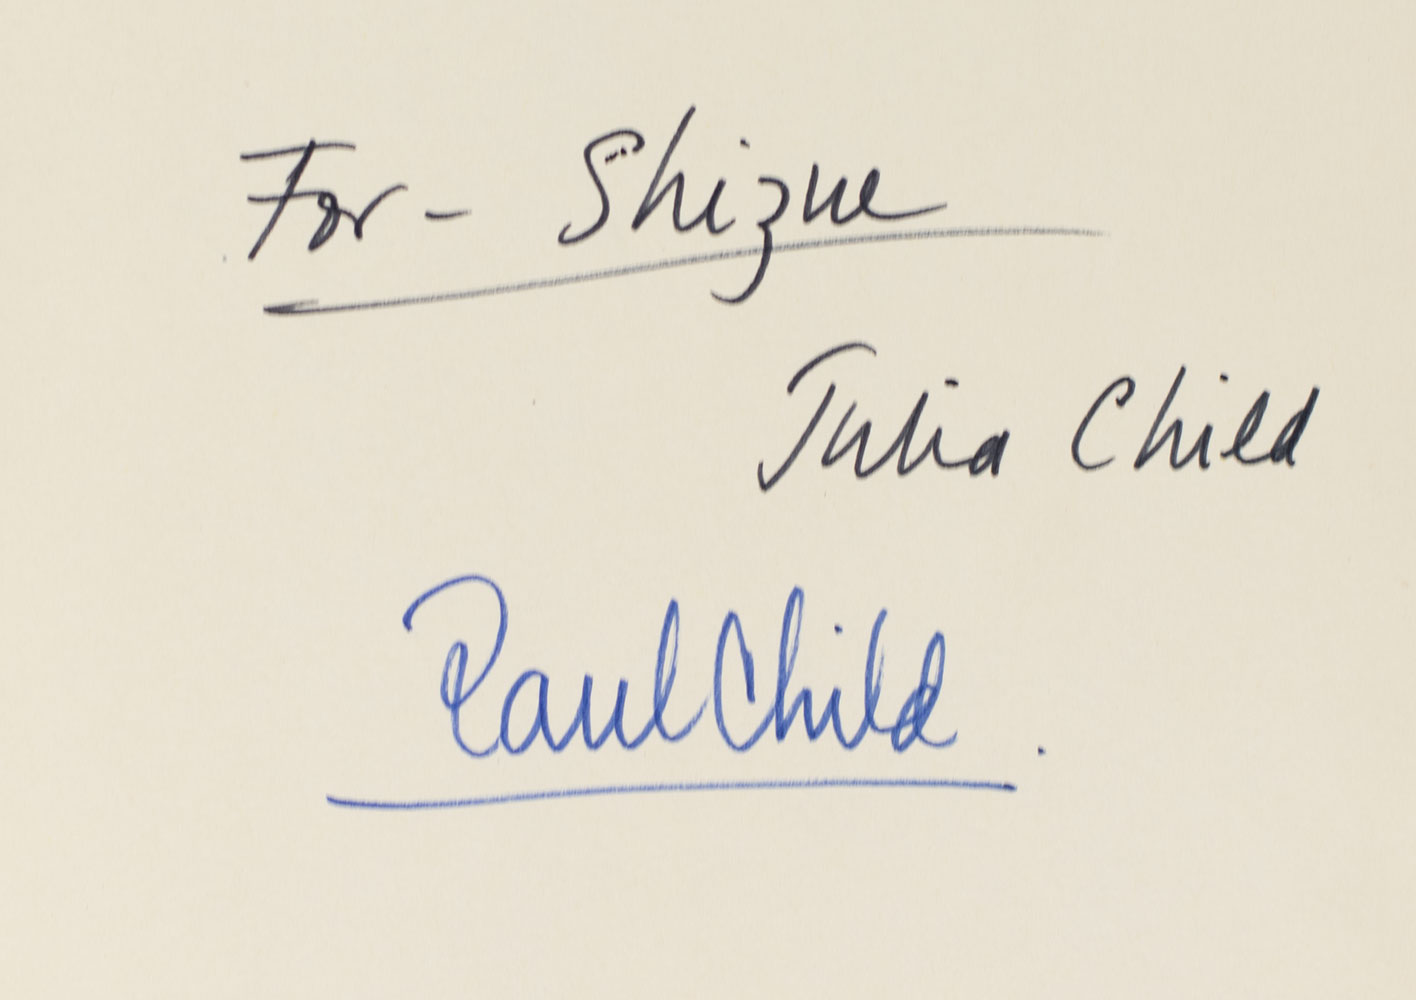 For - Shizue
Julia Child
Paul Child.